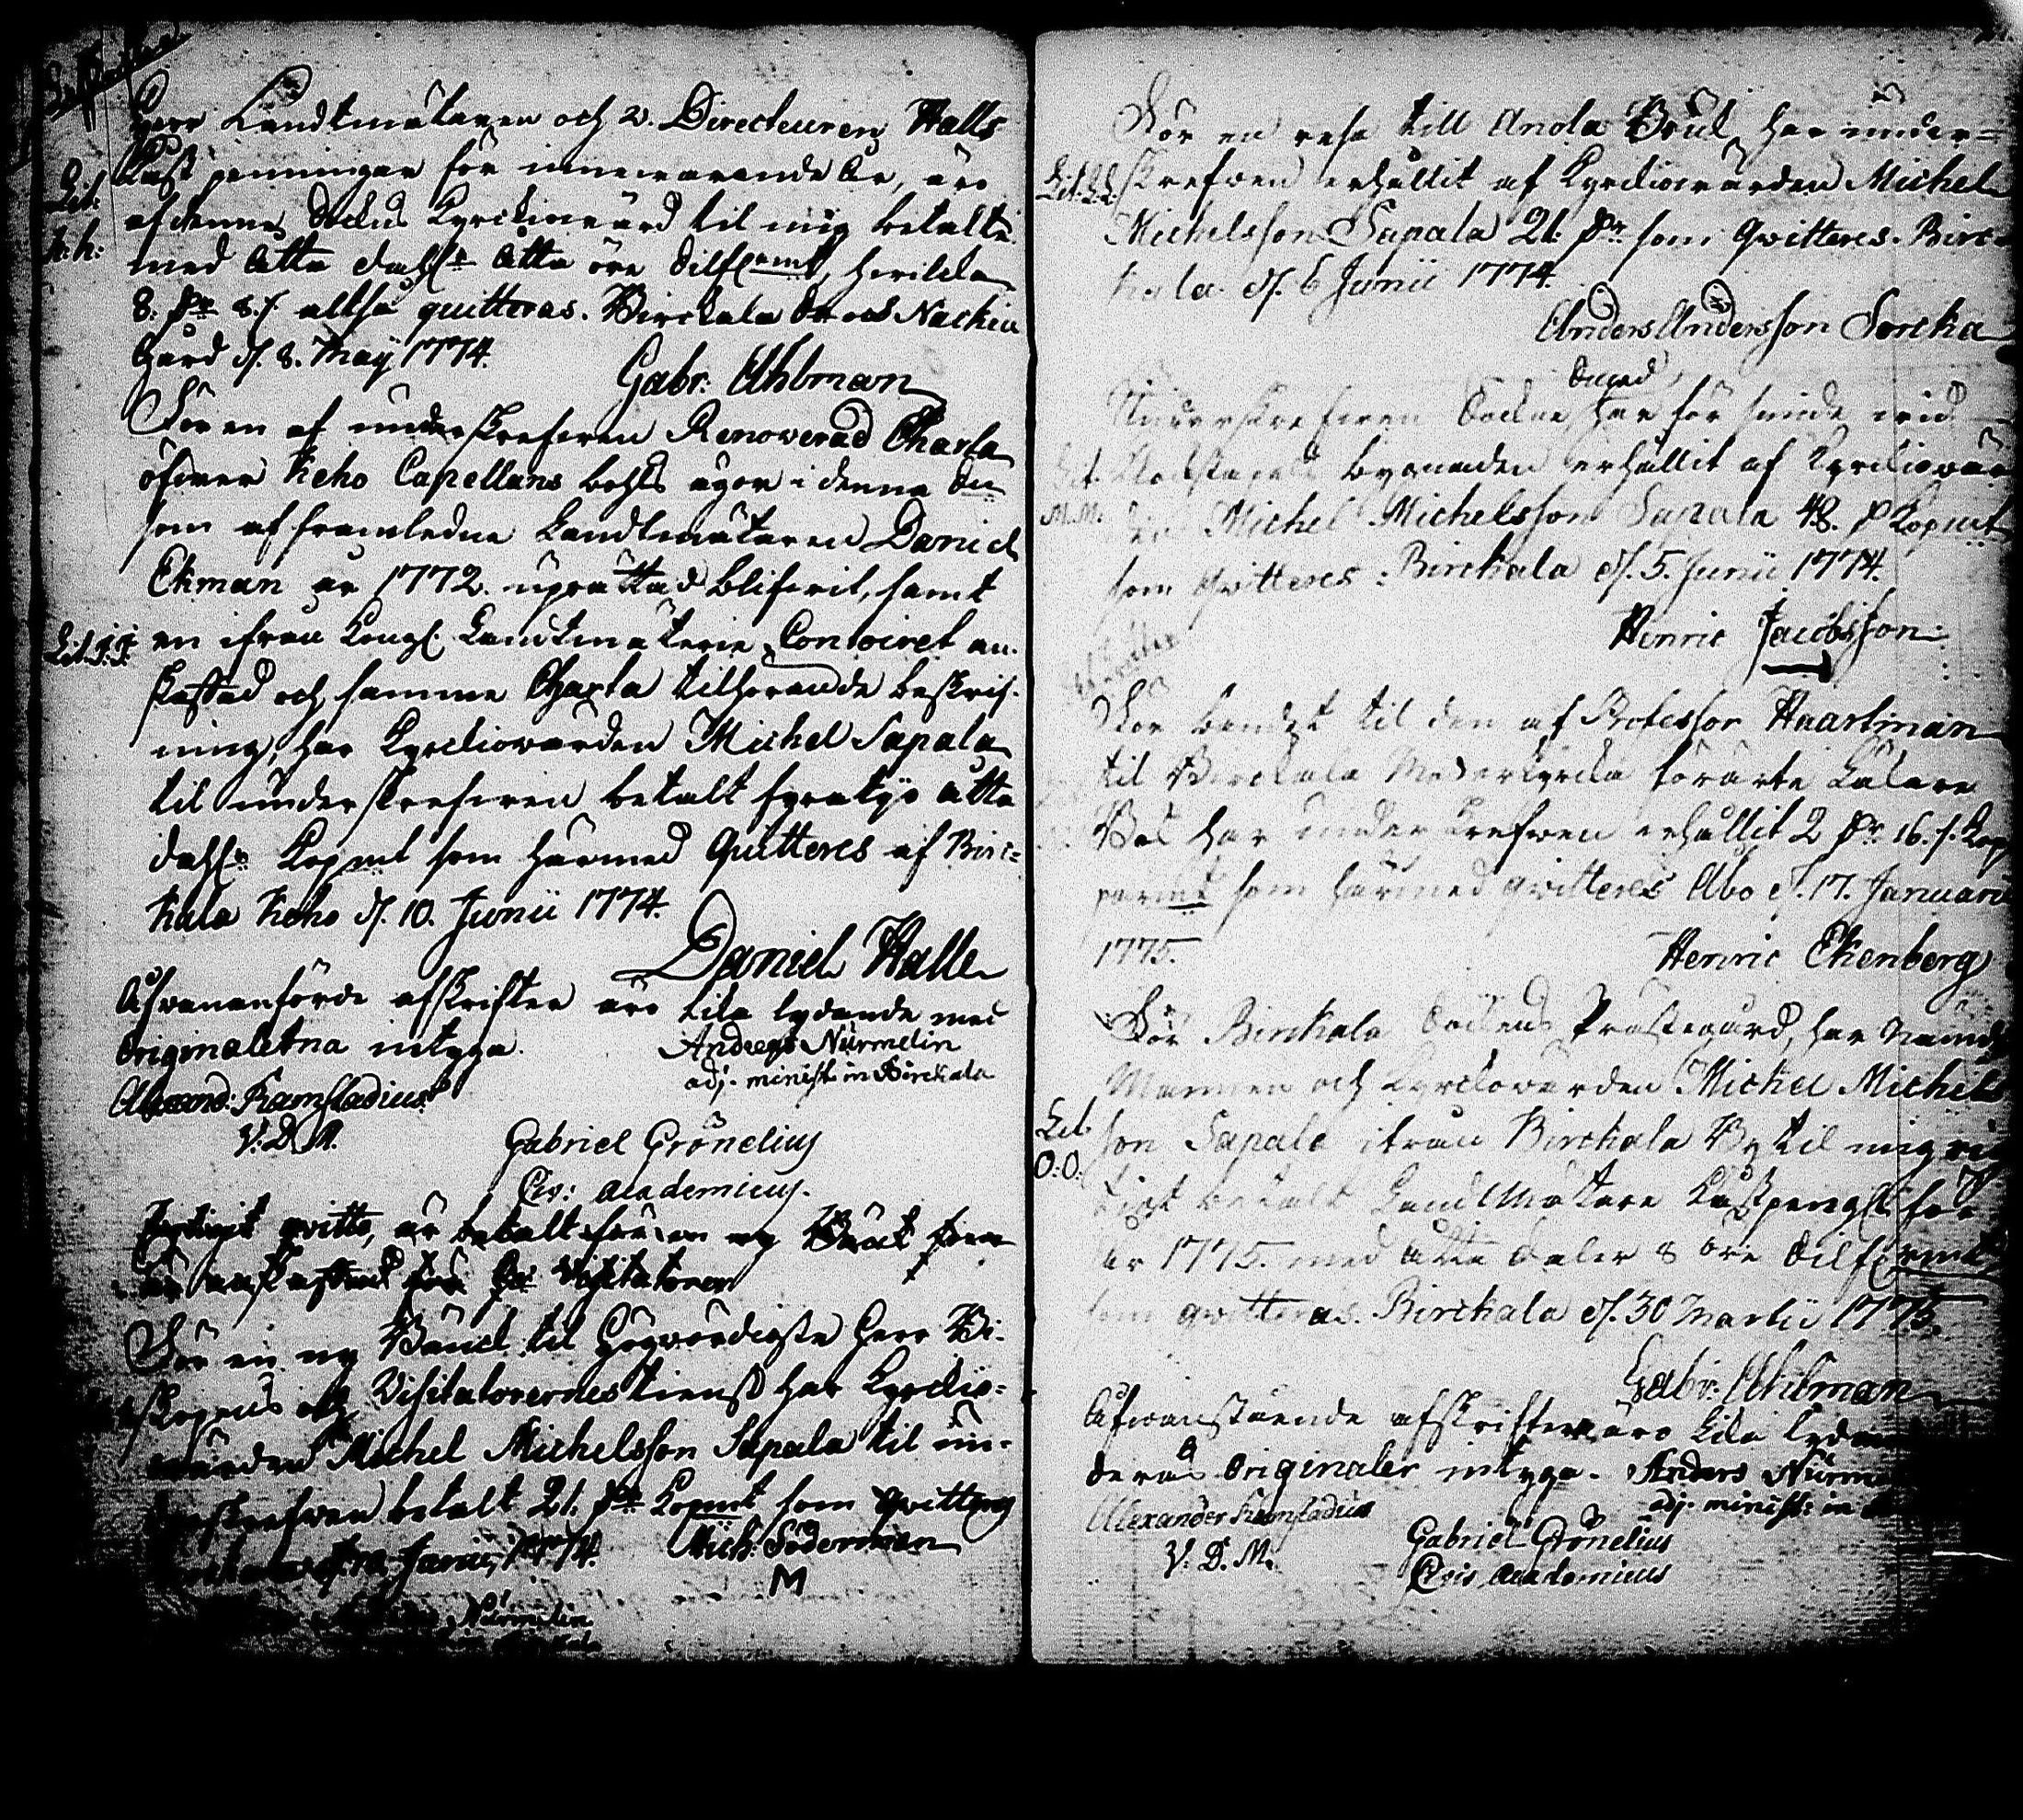 Herr Landtmätaren och v. Directeuren Halls
Kåst penningar för innewarande År, äro
Lit: h: h:
af denne Sockns Kyrckiowärd til mig betalte
med Åtta dahl:r Åtta öre Silf:rmt, hwilcka
8. D:r 8./. altså quitteras. Birckala och Nackia
Gård d. 8. Maÿ 1774.
Gabr: Ahlman
För en af underskrefwen Renoverad Charta
öfwer Keho Capellans bohls ägor i denne Sn
som af framledne Landtmätaren Daniel
Ekman år 1772. uprättad blifwit, samt
Lit. J:J:
en ifrån Kongl. Landtmäterie Contoiret an-
skaffad och samma Charta tilhörande beskrif-
ning, har Kyrckiowärden Michel Sapala
til underskrefwen betalt fyratijo åtta
dahl:r Kopmt som härmed Quitteres af Birc-
kala Keho d. 10. Junii 1774.
Daniel Hall
Ofwananförde afskrifter äro lika lydande med
Originalerna intyga.
Andreas Nürmelin
adj. minist. in Birckala
Alexand: Ramstadius
V. D. M.
Gabriel Grönelius
Civ: academicus.
qvitto, är betalt för en ny Båt som
är anskaffad för Visitatoren
För en ny Båud til Högwördigste Herr Bi-
skopens och Visitatorernes tienst har Kyrckio-
wärden Michel Michelsson Sapala til un-
derskrefwen betalt 21. D:r Kopmt som qvitteras
Junii 1774.
Mich: Söderman
M
Nürmelin
För en resa till Anola Bruk har under-
Lit. L.L.
skrefwen erhållit af Kyrckiowärden Michel
Michelsson Sapala 21. D:r som qvitteres. Birc-
kala d. 6 Junii 1774.
Anders Andersson Sorcka
Underskrefwen Sockne har för smide wid
Lit. M.M.
Klockstapels byggnaden erhållit af Kyrckiowär-
den Michel Michelsson Sapala 48. D Kopmt
som qvitteres: Birckala d. 5. Junii 1774.
Henric Jacobsson:
För bandet til den af Professor Haartman
til Birckala Moderkyrcka förärte Läkare
Bok har underskrefwen erhållit 2 D:r 16./. Kop-
parmt som härmed qvitteres Åbo d. 17. Januarii
1775.
Henric Ekenberg
För Birckala Sockens Prästegård, har Nämde-
Mannen och Kyrckowärden Michel Michels-
Lit. O:O:
son Sapala ifrån Birckala By til mig rik-
tigt betalt Landtmätare Kåstpengr för
år 1775. med åtta Daler 8 öre Silf:rmt
som qvitteras. Birckala d. 30 Martii 1775.
Gabr: Ahlman
Ofwanstående afskrifter äro lika lydan
deras Originaler intyga. Anders Nürm
adj. minist: in
Alexander Ramstadius
V. D. M.
Gabriel Grönelius
Civis academicus